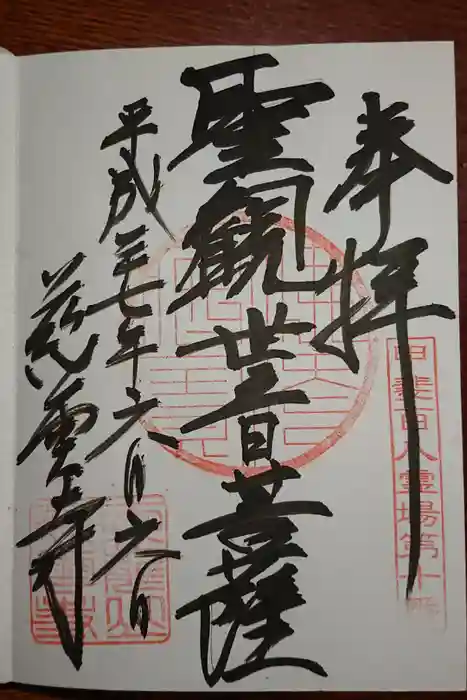 奉拝
甲斐百八霊場第十番
聖観世音菩薩
平成二十七年六月六日
慈雲寺